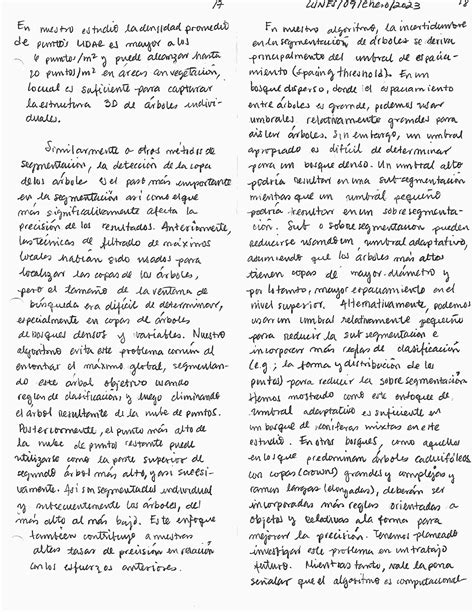 17
En nuestro estudio la densidad promedio
de puntos LIDAR es mayor a los
6 puntos/m² y puede alcanzar hasta
20 puntos/m² en áreas con vegetación,
lo cual es suficiente para capturar
la estructura 3D de árboles indivi-
duales.
Similarmente a otros métodos de
segmentación, la detección de la copa
de los árboles es el paso más importante
en la segmentación así como el que
más significativamente afecta la
precisión de los resultados. Anteriormente,
las técnicas de filtrado de máximos
locales habían sido usados para
localizar las copas de los árboles,
pero el tamaño de la ventana de
búsqueda era difícil de determinar,
especialmente en copas de árboles
de bosques densos y variables. Nuestro
algoritmo evita este problema común al
encontrar el máximo global, segmentan-
do este árbol objetivo usando
reglas de clasificación y luego eliminando
el árbol resultante de la nube de puntos.
Posteriormente, el punto más alto de
la nube de puntos restante puede
utilizarse como la parte superior de
segundo árbol más alto, y así sucesi-
vamente. Así son segmentados individual
y subsecuentemente los árboles, del
más alto al más bajo. Este enfoque
también contribuyó a nuestras
altas tasas de precisión en relación
con los esfuerzos anteriores.
LUNES/09/Enero/2023 18
En nuestro algoritmo, la incertidumbre
en la segmentación de árboles se deriva
principalmente del umbral de espacia-
miento (spacing threshold). En un
bosque disperso, donde el espaciamiento
entre árboles es grande, podemos usar
umbrales relativamente grandes para
aislar árboles. Sin embargo, un umbral
apropiado es difícil de determinar
para un bosque denso. Un umbral alto
podría resultar en una sub segmentación
mientras que un umbral pequeño
podría resultar en sobre segmenta-
ción. Sub o sobre segmentacion pueden
reducirse usando un umbral adaptativo,
asumiendo que los árboles más altos
tienen copas de mayor diámetro y
por lo tanto, mayor espaciamiento en el
nivel superior. Alternativamente, podemos
usar un umbral relativamente pequeño
para reducir la sub segmentación e
incorporar más reglas de clasificación
(e.g.; la forma y distribución de los
puntos) para reducir la sobre segmentación
Hemos mostrado como este enfoque de
umbral adaptativo es suficiente en
un bosque de coníferas mixtas en este
estudio. En otros bosques, como aquellos
en los que predominan árboles caducifóleos
con copas (crowns) grandes y complejas y
ramas largas (elongadas), deberán ser
incorporadas más reglas orientadas a
objetos y relativas a la forma para
mejorar la precisión. Tenemos planeado
investigar este problema en un trabajo
futuro. Mientras tanto, vale la pena
señalar que el algoritmo es computacional